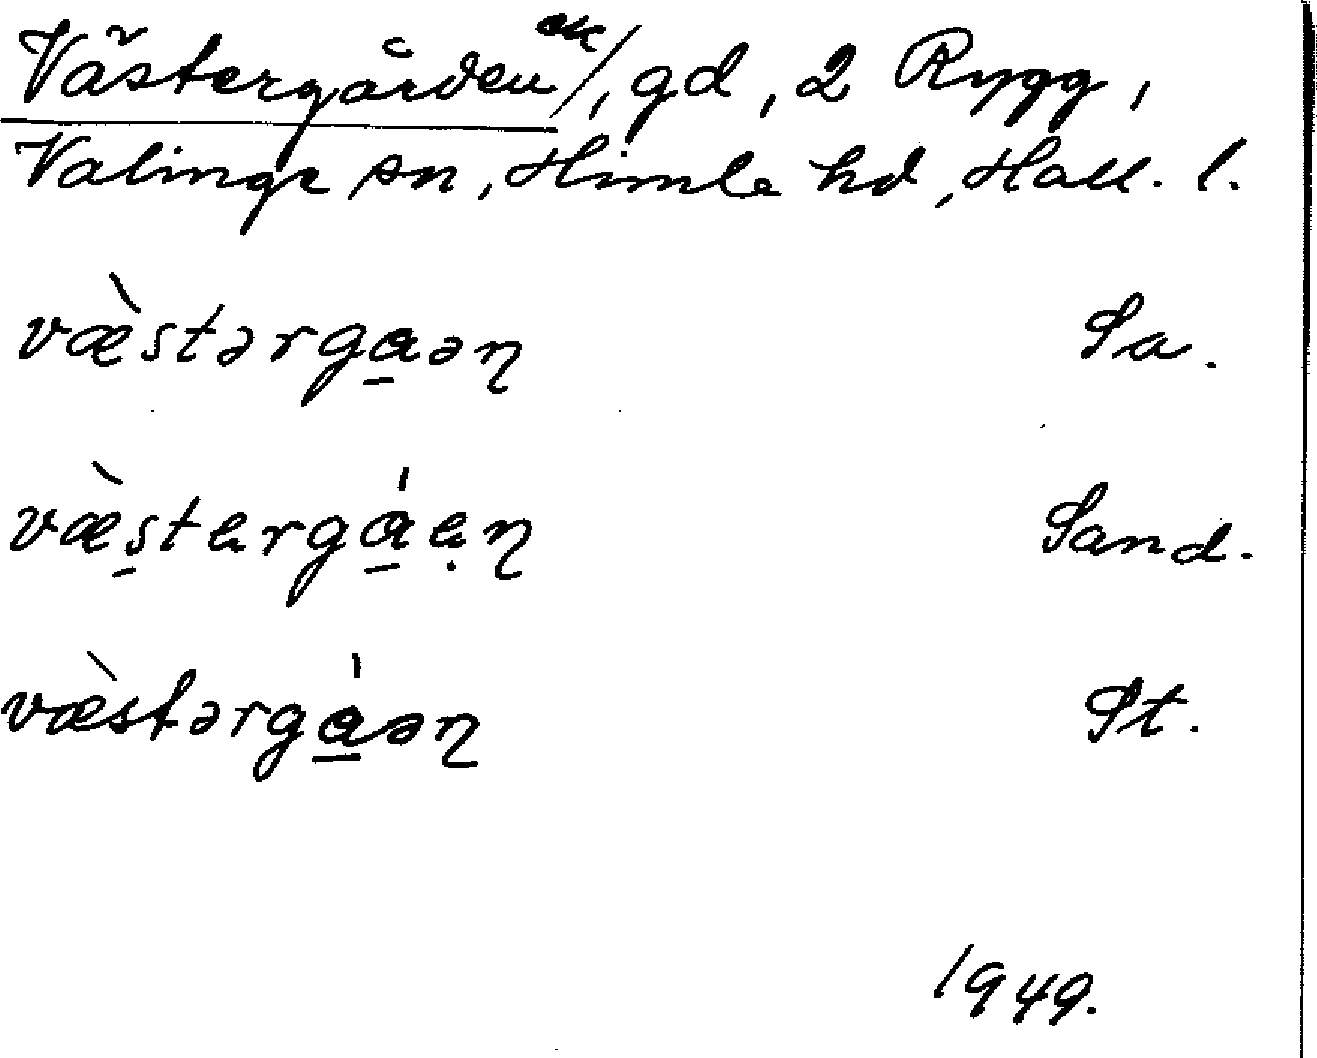 Västergården ek/, gd, 2 Rygg,
Valinge sn, Himle hd, Hall. l.
væ̀stərga̱əɳ Sa.
væ̀s̱tergá̱ẹɳ Sand.
væ̀stərgá̱əɳ St.
1949.